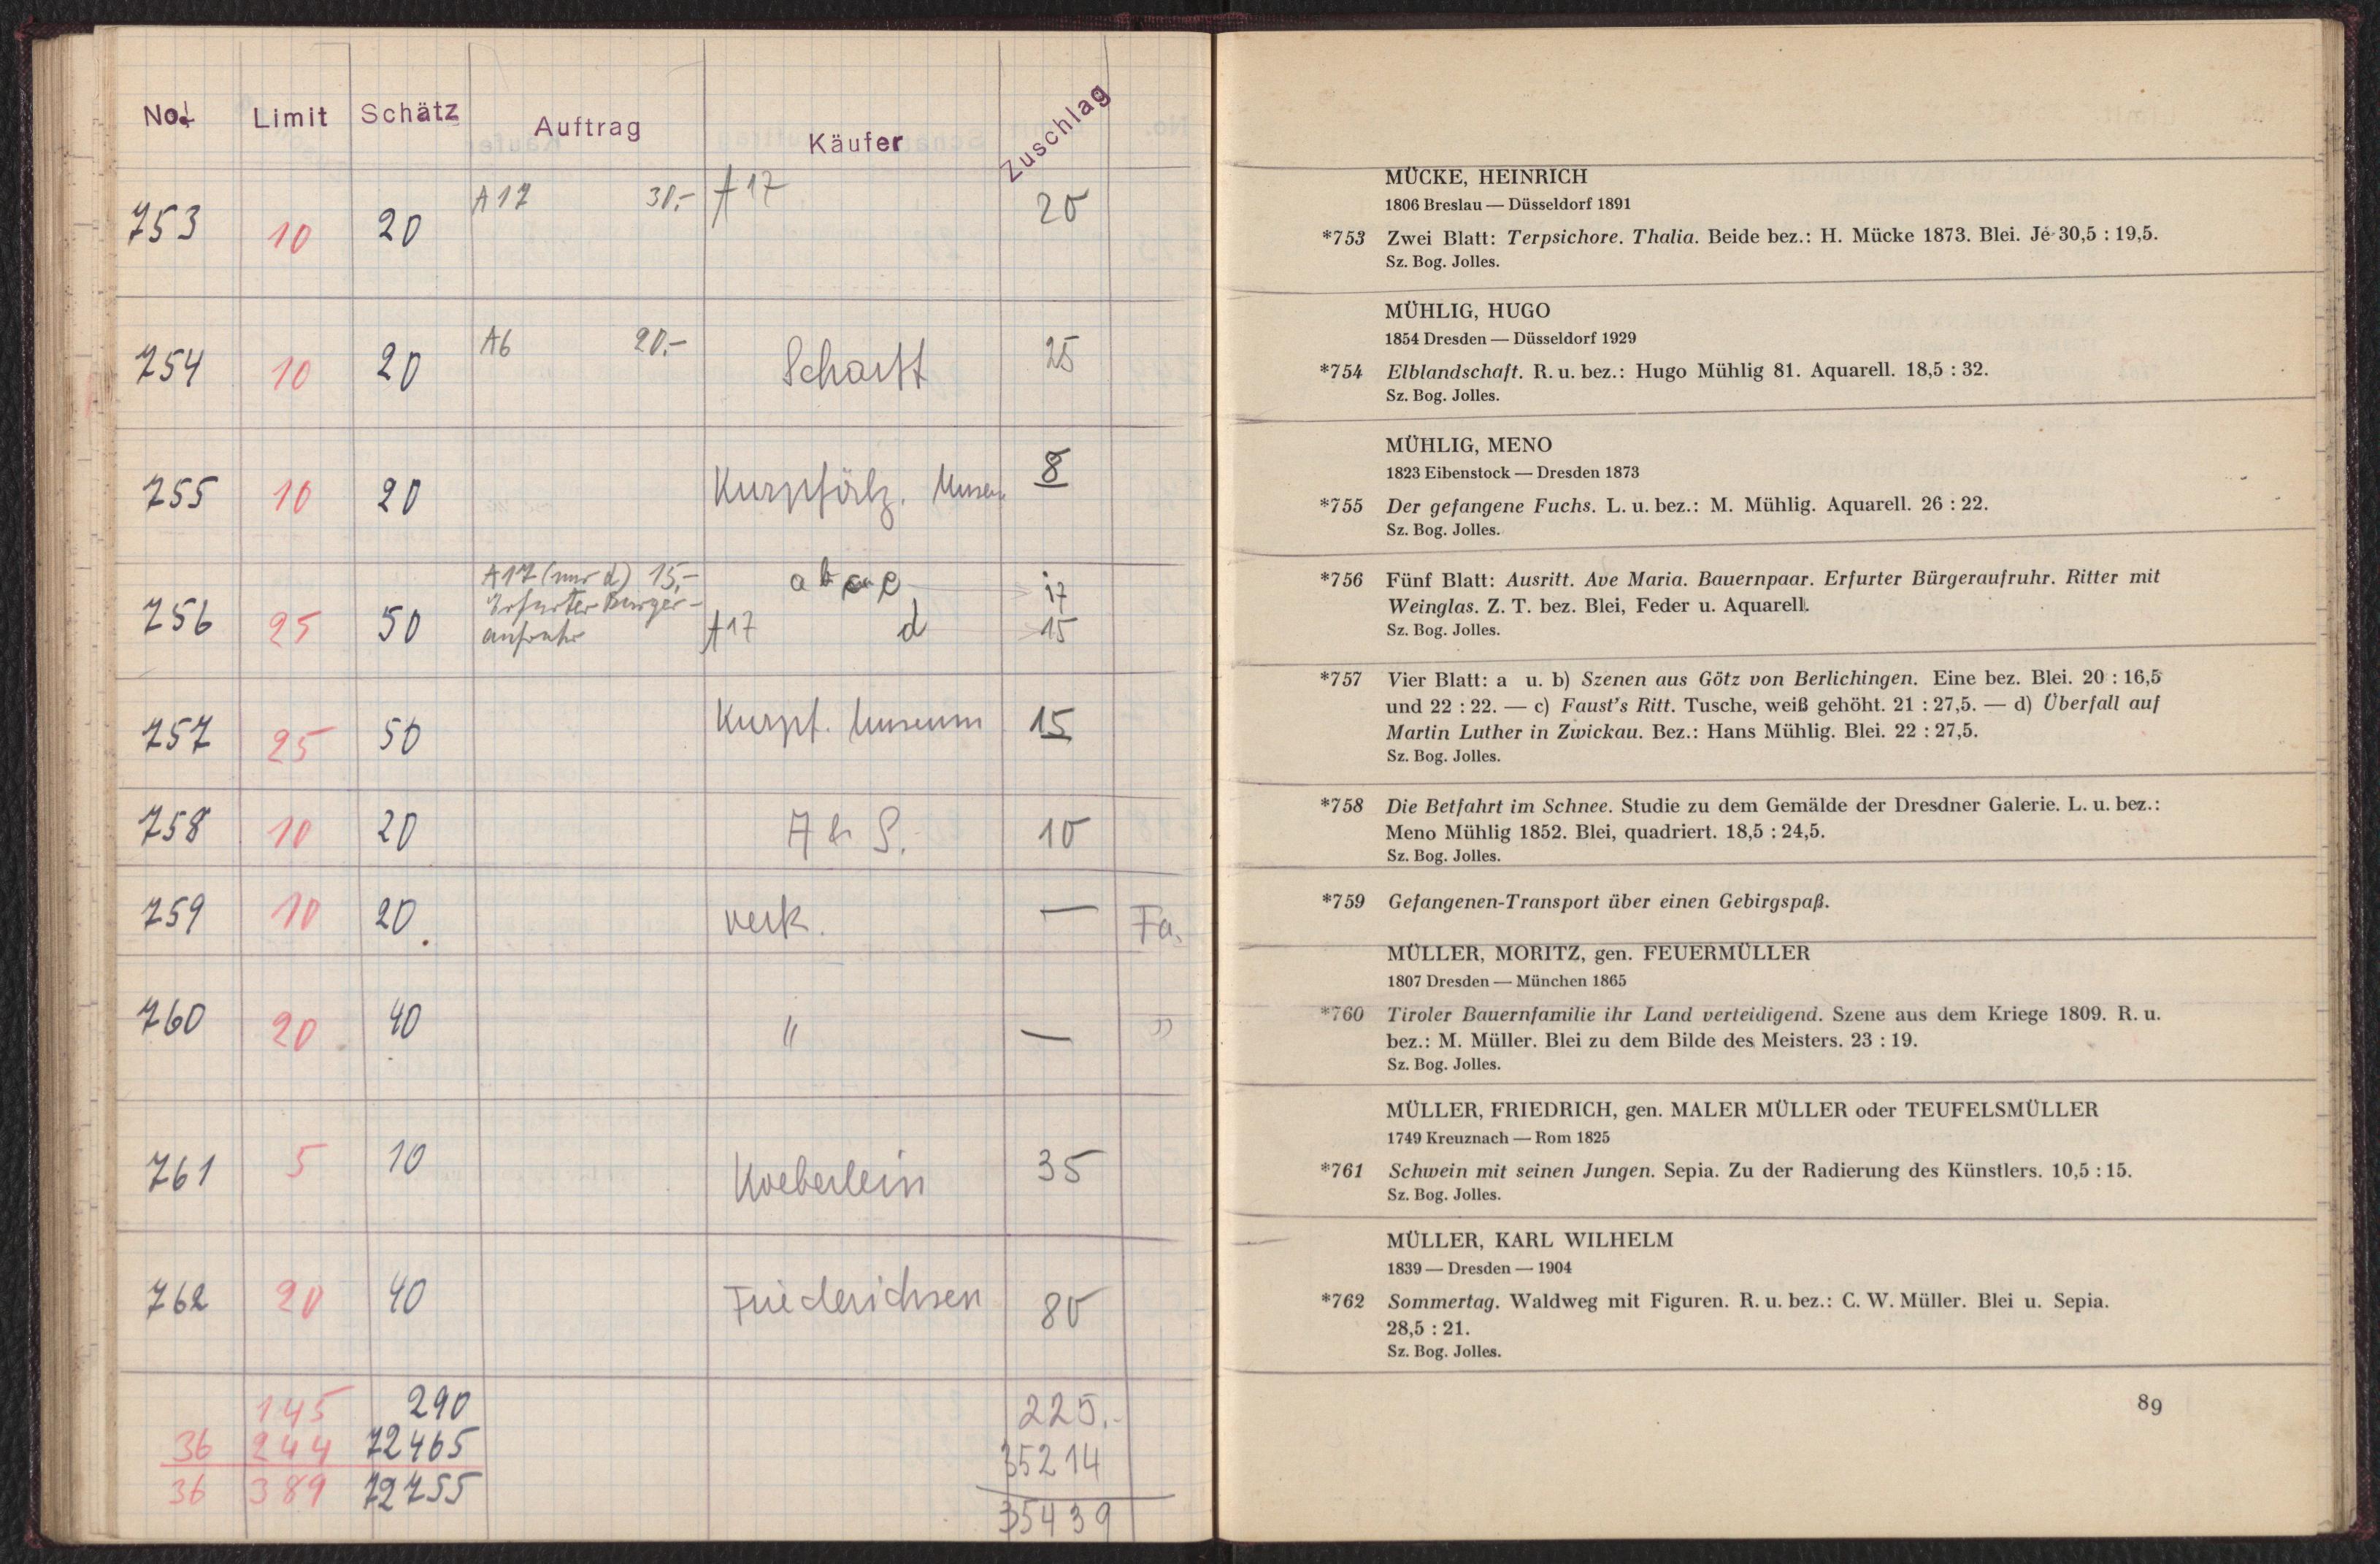 No. Limit Schätz Auftrag Käufer Zuschlag
753 10 20 A17 30,- A17 20
754 10 20 A6 20.- Scharff 25
755 10 20 Kurpfälz. Museum 8
756 25 50 A17 (nur d) 15,- a b c e 17
Erfurter Bürger-
aufruhr A17 d 15
757 25 50 Kurpf. Museum 15
758 10 20 A & S. 10
759 10 20. verk. — Fa.
760 20 40 " — "
761 5 10 Koeberlein 35
762 20 40 Friederichsen 80
145 290 225.-
36 244 72465 35214
36 389 72755 35439
MÜCKE, HEINRICH
1806 Breslau — Düsseldorf 1891
*753 Zwei Blatt: Terpsichore. Thalia. Beide bez.: H. Mücke 1873. Blei. Je 30,5 : 19,5.
Sz. Bog. Jolles.
MÜHLIG, HUGO
1854 Dresden — Düsseldorf 1929
*754 Elblandschaft. R. u. bez.: Hugo Mühlig 81. Aquarell. 18,5 : 32.
Sz. Bog. Jolles.
MÜHLIG, MENO
1823 Eibenstock — Dresden 1873
*755 Der gefangene Fuchs. L. u. bez.: M. Mühlig. Aquarell. 26 : 22.
Sz. Bog. Jolles.
*756 Fünf Blatt: Ausritt. Ave Maria. Bauernpaar. Erfurter Bürgeraufruhr. Ritter mit
Weinglas. Z. T. bez. Blei, Feder u. Aquarell.
Sz. Bog. Jolles.
*757 Vier Blatt: a u. b) Szenen aus Götz von Berlichingen. Eine bez. Blei. 20 : 16,5
und 22 : 22. — c) Faust's Ritt. Tusche, weiß gehöht. 21 : 27,5. — d) Überfall auf
Martin Luther in Zwickau. Bez.: Hans Mühlig. Blei. 22 : 27,5.
Sz. Bog. Jolles.
*758 Die Betfahrt im Schnee. Studie zu dem Gemälde der Dresdner Galerie. L. u. bez.:
Meno Mühlig 1852. Blei, quadriert. 18,5 : 24,5.
Sz. Bog. Jolles.
*759 Gefangenen-Transport über einen Gebirgspaß.
MÜLLER, MORITZ, gen. FEUERMÜLLER
1807 Dresden — München 1865
*760 Tiroler Bauernfamilie ihr Land verteidigend. Szene aus dem Kriege 1809. R. u.
bez.: M. Müller. Blei zu dem Bilde des Meisters. 23 : 19.
Sz. Bog. Jolles.
MÜLLER, FRIEDRICH, gen. MALER MÜLLER oder TEUFELSMÜLLER
1749 Kreuznach — Rom 1825
*761 Schwein mit seinen Jungen. Sepia. Zu der Radierung des Künstlers. 10,5 : 15.
Sz. Bog. Jolles.
MÜLLER, KARL WILHELM
1839 — Dresden — 1904
*762 Sommertag. Waldweg mit Figuren. R. u. bez.: C. W. Müller. Blei u. Sepia.
28,5 : 21.
Sz. Bog. Jolles.
89